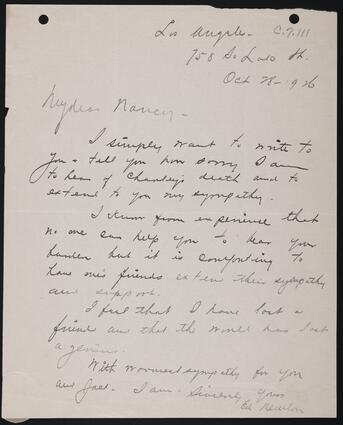 Los Angeles - C.7.111
758 So
Oct 28-1926
My dear Nancy -
I simply want to write to
you & tell you how sorry I am
to hear of Charley's death and to
extend to you my sympathy.
I know from experience that
no one can help you to bear your
burden but it is comforting to
have one's friends extend their sympathy
and support.
I feel that I have lost a
friend and that the world has lost
a genius.
With warmest sympathy for you
and Joe. I am - Sincerely yours
Ed